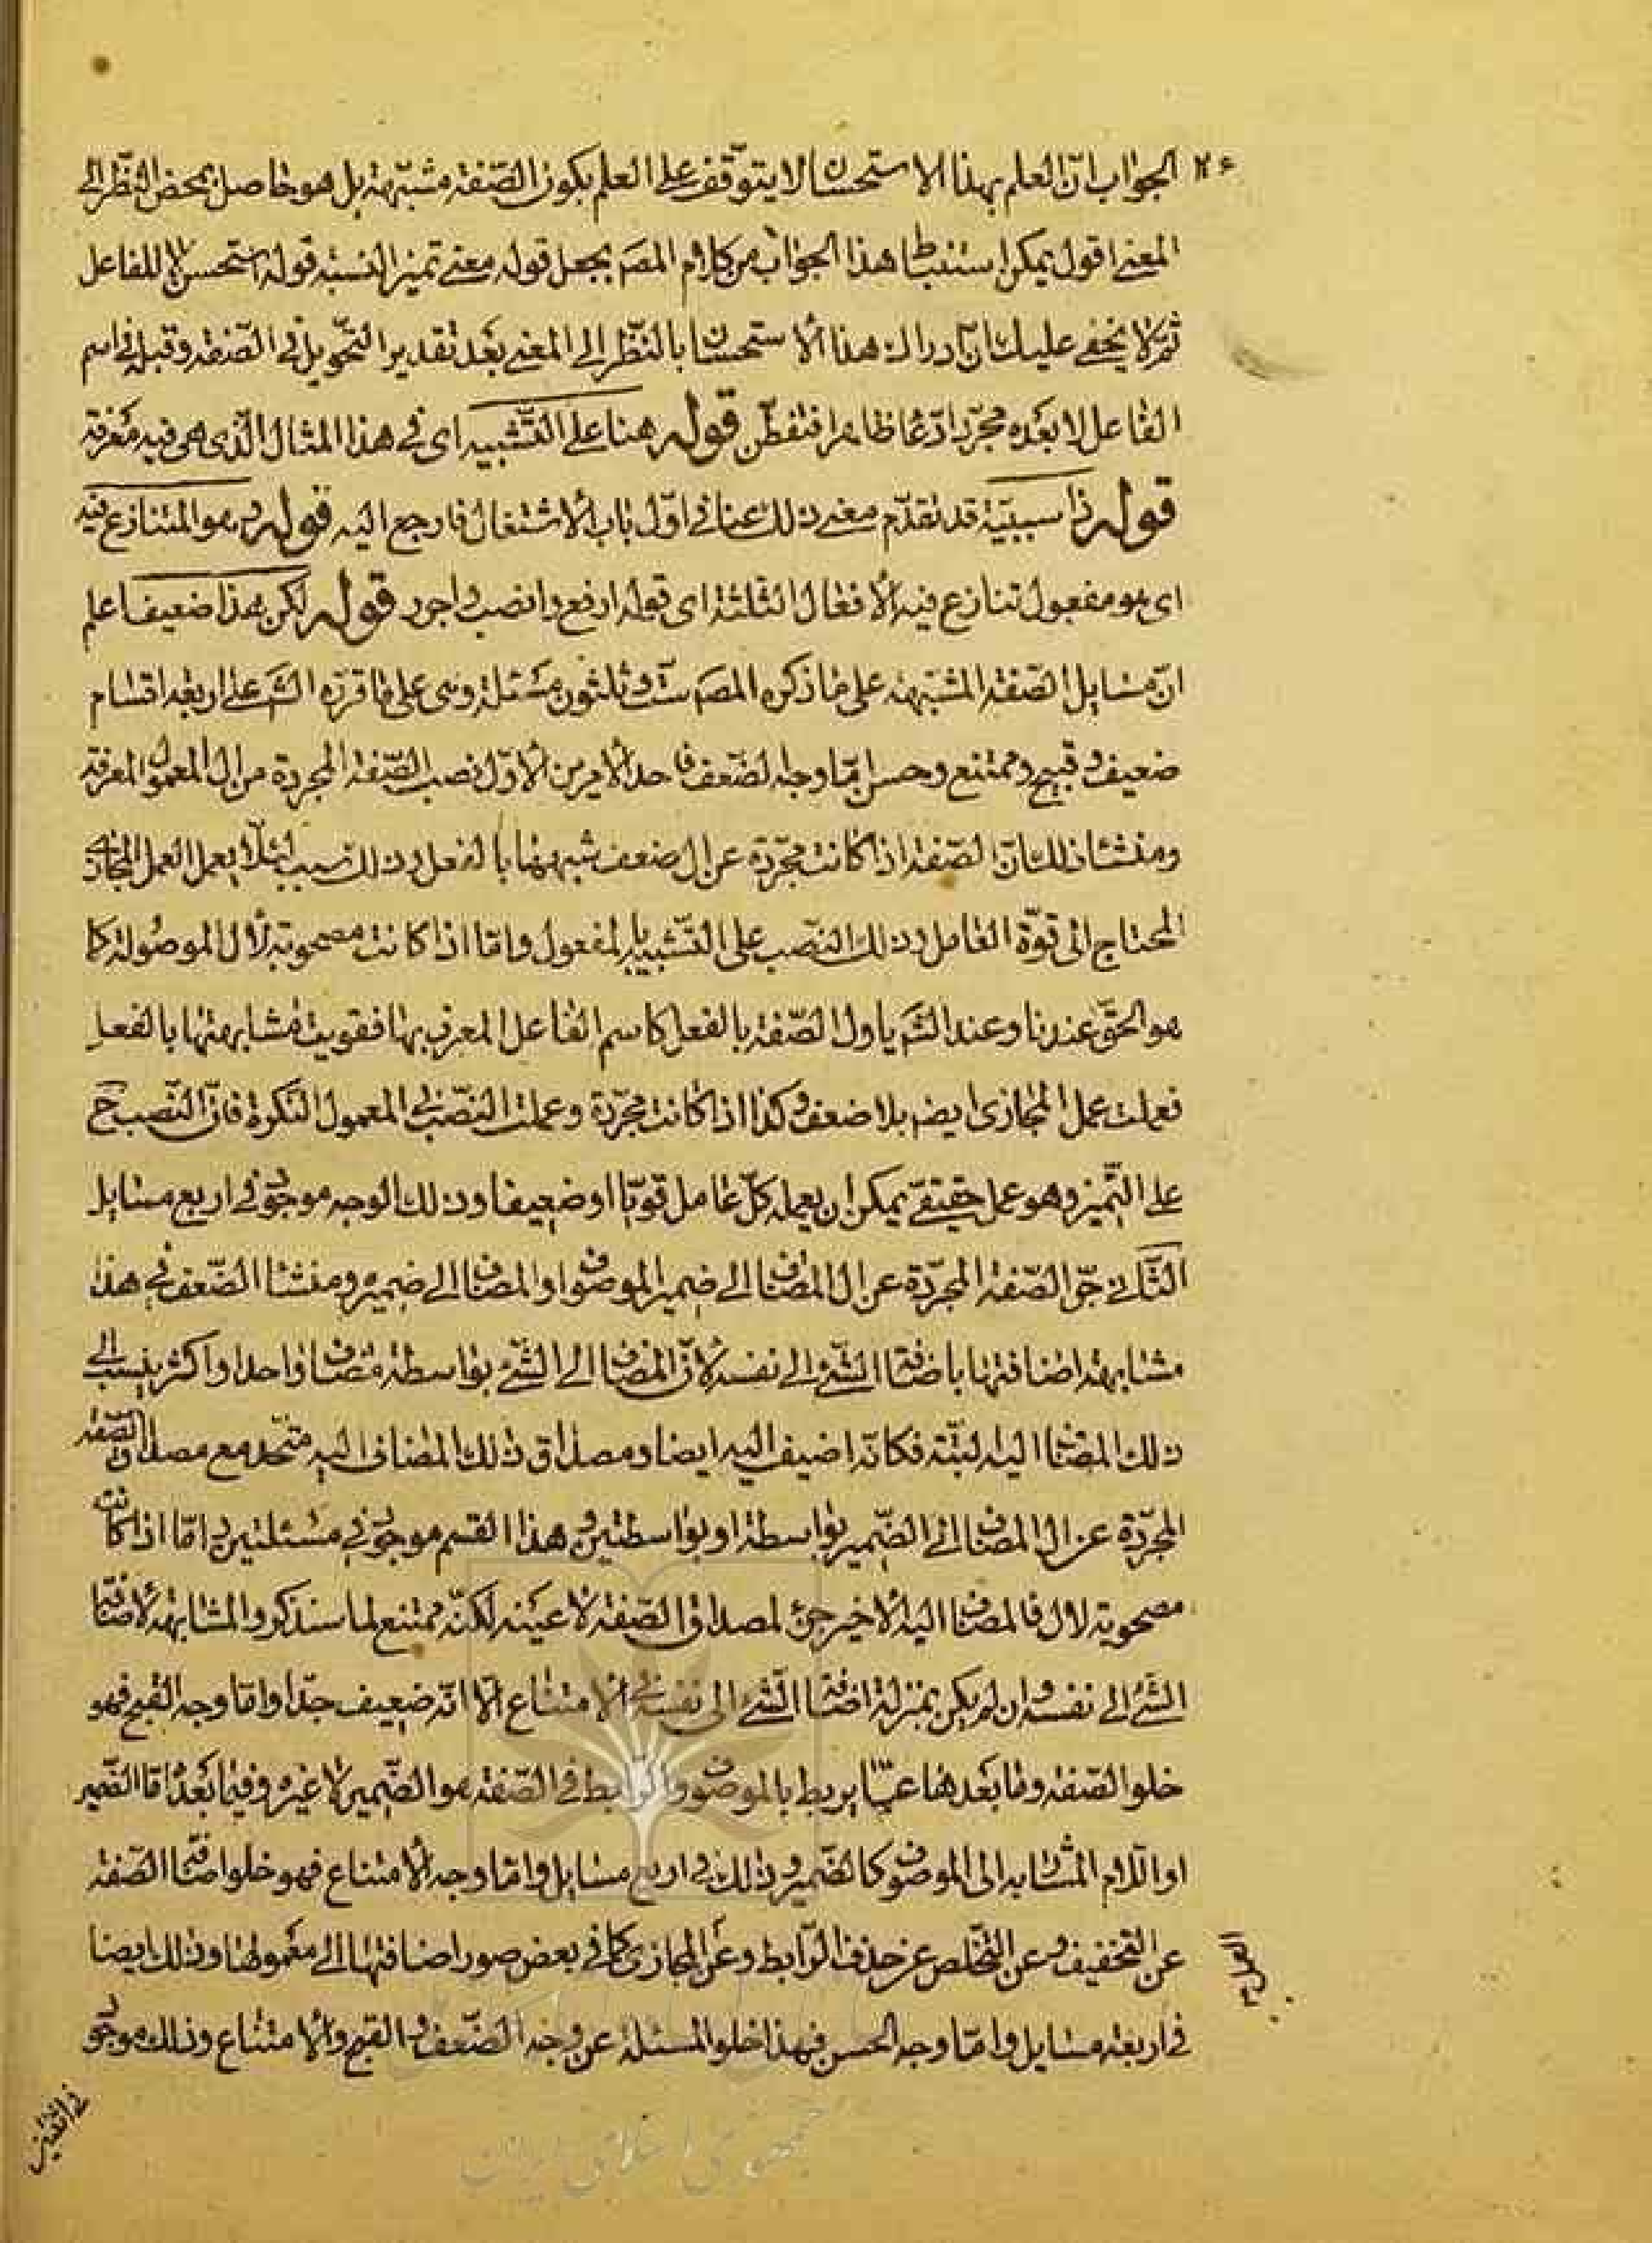 الجواب ان العلم بهذا الاستحسان لا يتوقف على العلم بكون الصفة مشبهة بل هو حاصل بمحض النظر الى
المعنى اقول يمكن استنباط هذا الجواب من كلام المصـ بجعل قوله معنى تميز النسبة قوله استحسن لا للفاعل
ثم لا يخفى عليك ان ادراك هذا الاستحسان بالنظر الى المعنى بعد تقدير التحويل في الصفة وقبله في اسم
الفاعل لا بعده مجرد ادعا ظاهرا فتفطن قوله هنا على التشبيه اى في هذا المثال الذى هى فيه معرفة
قوله ذا سببية قد تقدم معنى ذلك عنا في اول باب الاشتغال فارجع اليه قوله وهو المتنازع فيه
اى هو مفعول تنازع فيه الافعال الثلثة اى قوله ارفع وانصب واجرر قوله لكن هذا ضعيف اعلم
ان مسايل الصفة المشبهة على ما ذكره المصـ ست وثلثون مسئلة وهى على ما قرره الشـ على اربعة اقسام
ضعيف وقبيح وممتنع وحسن اما وجه الضعف فاحد الامرين الاول نصب الصفة المجردة من ال المعمول المعرفة
ومنشا ذلك ان الصفة اذا كانت مجردة عن ال ضعف شبهها بالفعل وذلك سبب لئلا يعمل العمل المجازى
المحتاج الى قوة العامل وذلك النصب على التشبيه بالمفعول واما اذا كانت مصحوبة لال الموصولة كما
هو الحق عندنا وعند الشـ ياول الصفة بالفعل كاسم الفاعل المعرف بها فقويت مشابهتها بالفعل
فعملت عمل المجازى ايضـ بلا ضعف وكذا اذا كانت مجردة وعملت النصب في المعمول النكرة فان النصب ح
على التميز وهو عمل حقيقى يمكن ان يعمله كل عامل قويا او ضعيفا وذلك الوجه موجود في اربع مسايل
الثانى جر الصفة المجردة عن ال المضاف الى ضمير الموصوف او المضاف الى ضميره ومنشا الضعف في هذا
مشابهة اضافتها باضافة الشئ الى نفسه لان المضاف الى الشئ بواسطة مضاف واحد او اكثر ينسب الى
ذلك المضاف اليه البتة فكانه اضيف اليه ايضا ومصداق ذلك المضاف اليه متحد مع مصداق الصفة
المجردة عن ال المضاف الى الضمير بواسطة او بواسطتين وهذا القسم موجود في مسئلتين واما اذا كانت
مصحوبة لال فالمضاف اليه الاخير جزئ لمصداق الصفة لا عينه لكنه ممتنع لما سنذكر والمشابهة لاضافة
الشئ الى نفسه وان لم يكن بمنزلة اضافة الشئ الى نفسه في الامتناع الا انه ضعيف جدا واما وجه القبح فهو
خلو الصفة وما بعدها عما يربط بالموصوف والرابط في الصفة هو الضمير لا غيره وفيما بعدها اما الضمير
او اللام المشابه الى الموصوف كالضمير وذلك في اربع مسايل واما وجه الامتناع فهو خلو اضافة الصفة
عن التخفيف وعن التخلص عن حذف الرابط وعن المجازى كما في بعض صور اضافتها الى معمولها وذلك ايضا
في اربعة مسايل واما وجه الحسن فهذا خلو المسئلة عن وجه الضعف والقبح والامتناع وذلك موجود
جمهورى اسلامى ايران